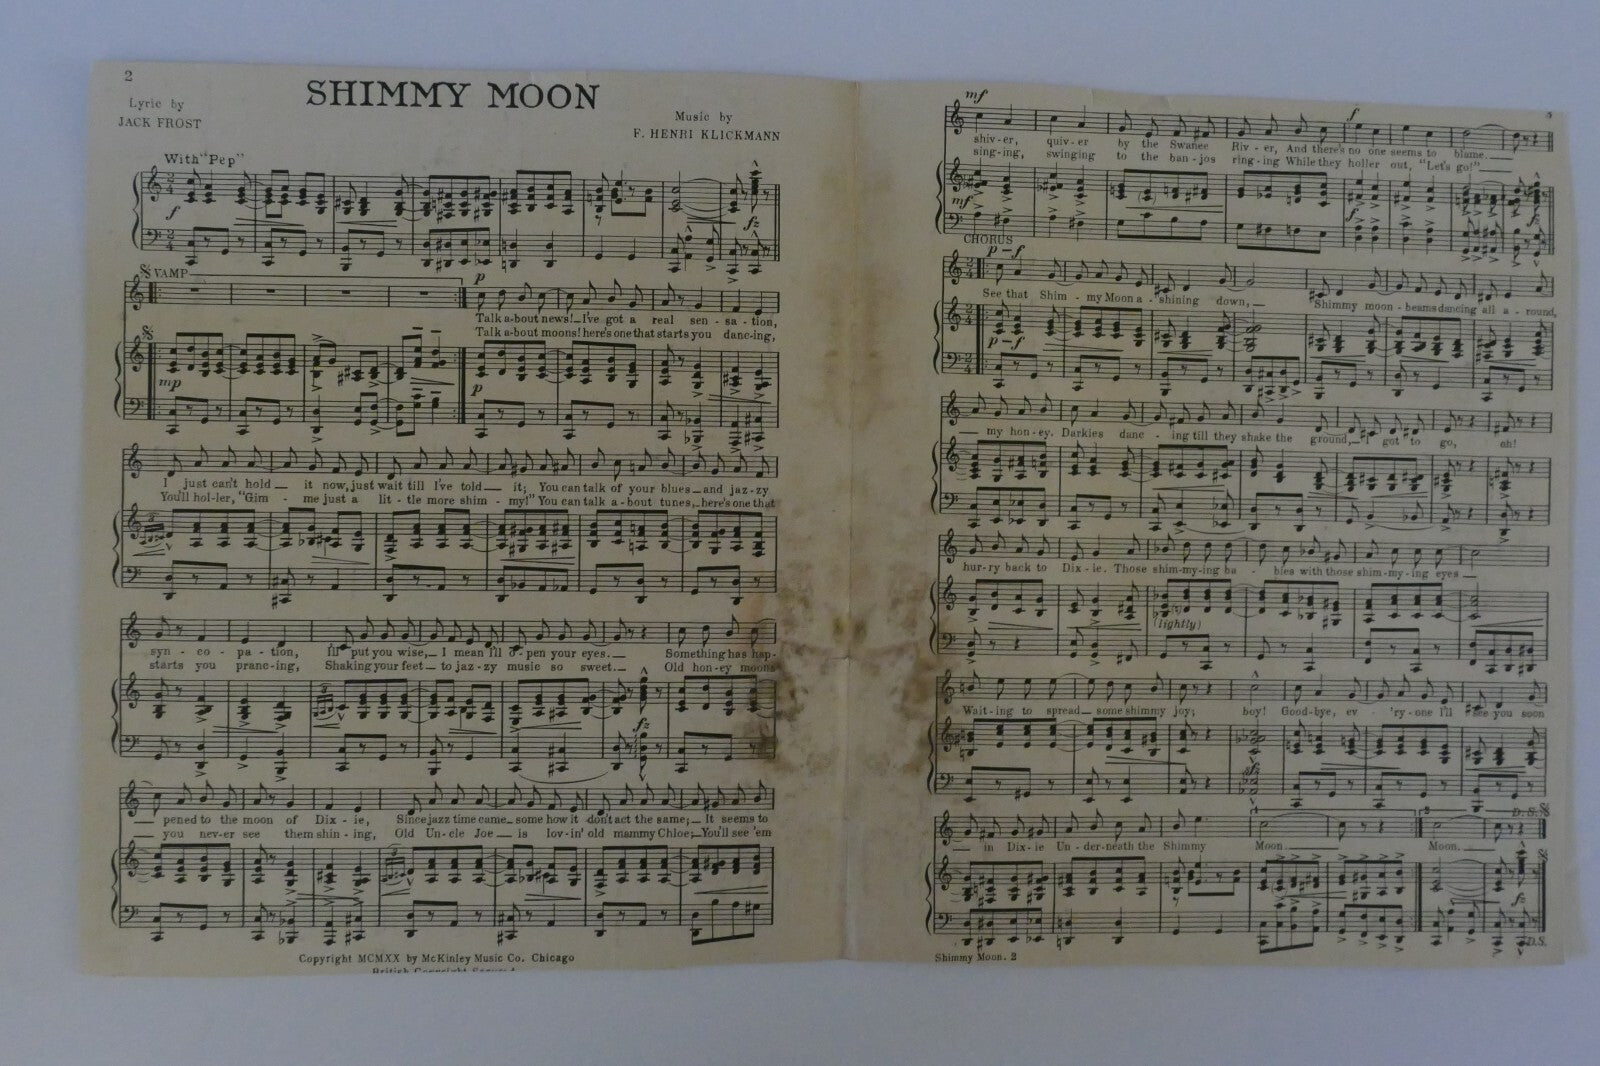 2
SHIMMY MOON
Lyric by
JACK FROST
Music by
F. HENRI KLICKMANN
With "Pep"
f
fz
VAMP
p
Talk a-bout news!_ I've got a real sen - sa - tion,
Talk a-bout moons! here's one that starts you danc-ing,
mp
p
I just can't hold _ it now, just wait till I've told _ it; You can talk of your blues _ and jaz-zy
You'll hol-ler, "Gim - me just a lit - tle more shim - my!" You can talk a-bout tunes, _ here's one that
syn - co - pa - tion, I'll put you wise, _ I mean I'll o-pen your eyes. _ Something has hap-
starts you pranc-ing, Shaking your feet _ to jaz-zy music so sweet. _ Old hon-ey moons
fz
pened to the moon of Dix-ie, Since jazz time came _ some how it don't act the same; _ It seems to
_ you nev-er see them shin-ing, Old Un-cle Joe _ is lov-in' old mammy Chloe; _ You'll see 'em
Copyright MCMXX by McKinley Music Co. Chicago
British Copyright Secured
mf
f
shiv-er, quiv-er by the Swanee Riv-er, And there's no one seems to blame. _
sing-ing, swinging to the ban-jos ring-ing While they holler out, "Let's go!" _
mf
f
fz
CHORUS
p-f
See that Shim - my Moon a - shining down, _ Shimmy moon - beams dancing all a - round,
p-f
_ my hon-ey. Darkies danc - ing till they shake the ground, _ I got to go, oh!
hur-ry back to Dix-ie. Those shim-my-ing ba - bies with those shim-my-ing eyes _
(lightly)
Wait-ing to spread _ some shimmy joy; boy! Good-bye, ev - 'ry-one I'll see you soon
sfz
1
2
D.S.
_ in Dix-ie Un-der-neath the Shimmy Moon. _ Moon. _
fz
D.S.
Shimmy Moon. 2